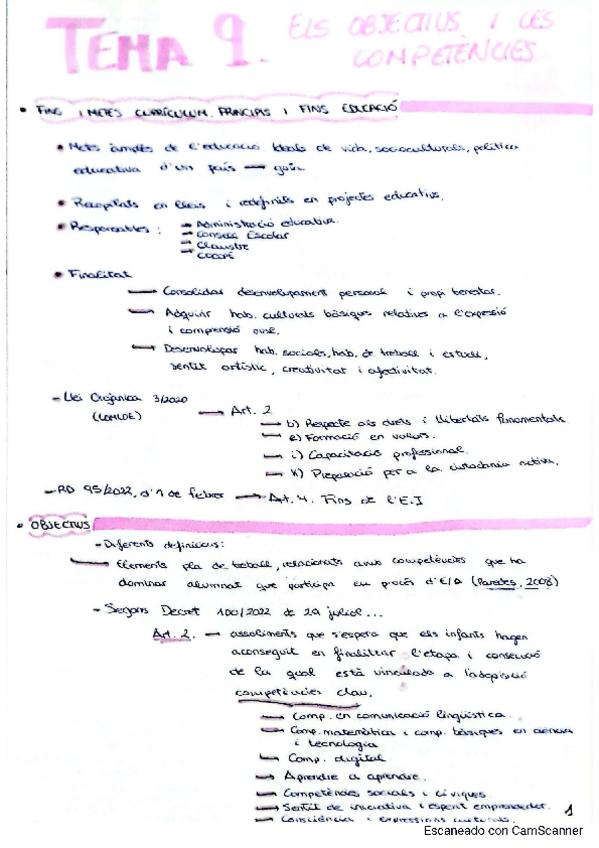 TEMA 9. ELS OBJECTIUS I LES
COMPETÈNCIES
• FINS I METES CURRÍCULUM. PRINCIPIS I FINS EDUCACIÓ
• Metes àmplies de l'educació Ideals de vida, socioculturals, política
educativa d'un país → guia.
• Recopilats en lleis i redefinits en projectes educatius.
• Responsables: → Administració educativa.
→ Consell Escolar
→ Claustre
→ COCOPE
• Finalitat
→ Consolidar desenvolupament personal i propi benestar.
→ Adquirir hab. culturals bàsiques relatives a l'expressió
i comprensió oral.
→ Desenvolupar hab. socials, hab. de treball i estudi,
sentit artístic, creativitat i afectivitat.
- Llei Orgànica 3/2020
(LOMLOE) → Art. 2
→ b) Respecte als drets i llibertats fonamentals
→ e) Formació en valors.
→ i) Capacitació professional.
→ k) Preparació per a la ciutadania activa.
- RD 95/2022, d'1 de febrer → Art. 4. Fins de l'E.I
• OBJECTIUS
- Diferents definicions:
→ Elements pla de treball, relacionats amb competències que ha
dominar alumnat que participa en procés d'E/A (Paredes, 2008)
- Segons Decret 100/2022 de 29 juliol...
Art. 2. → assoliments que s'espera que els infants hagen
aconseguit en finalitzar l'etapa i consecució
de la qual està vinculada a l'adquisició
competències clau.
→ Comp. en comunicació lingüística.
→ Comp. matemàtica i comp. bàsiques en ciència
i tecnologia
→ Comp. digital
→ Aprendre a aprendre.
→ Competències socials i cíviques.
→ Sentit de iniciativa i esperit emprenedor.
→ Consciència i expressions culturals.
1
Escaneado con CamScanner